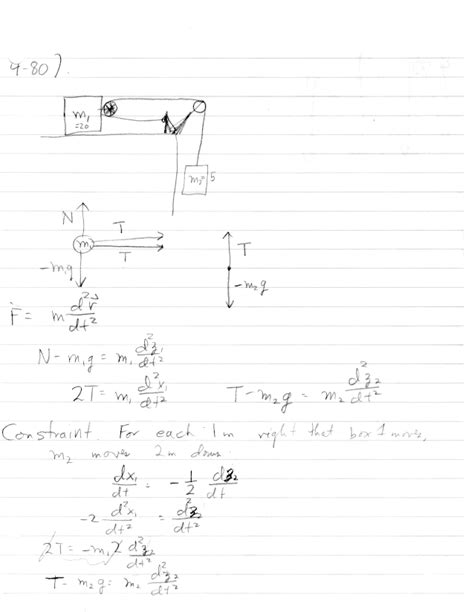 4-80).
m₁
=20
m₂= 5
N
T
T
m₁
-m₁g
T
-m₂g
F = m d²r⃗/dt²
N - m₁g = m₁ d²z₁/dt²
2T = m₁ d²x₁/dt²
T - m₂g = m₂ d²z₂/dt²
Constraint. For each 1m right that box 1 moves,
m₂ moves 2m down.
dx₁/dt = -1/2 dz₂/dt
-2 d²x₁/dt² = d²z₂/dt²
2T = -m₁2 d²z₂/dt²
T - m₂g = m₂ d²z₂/dt²